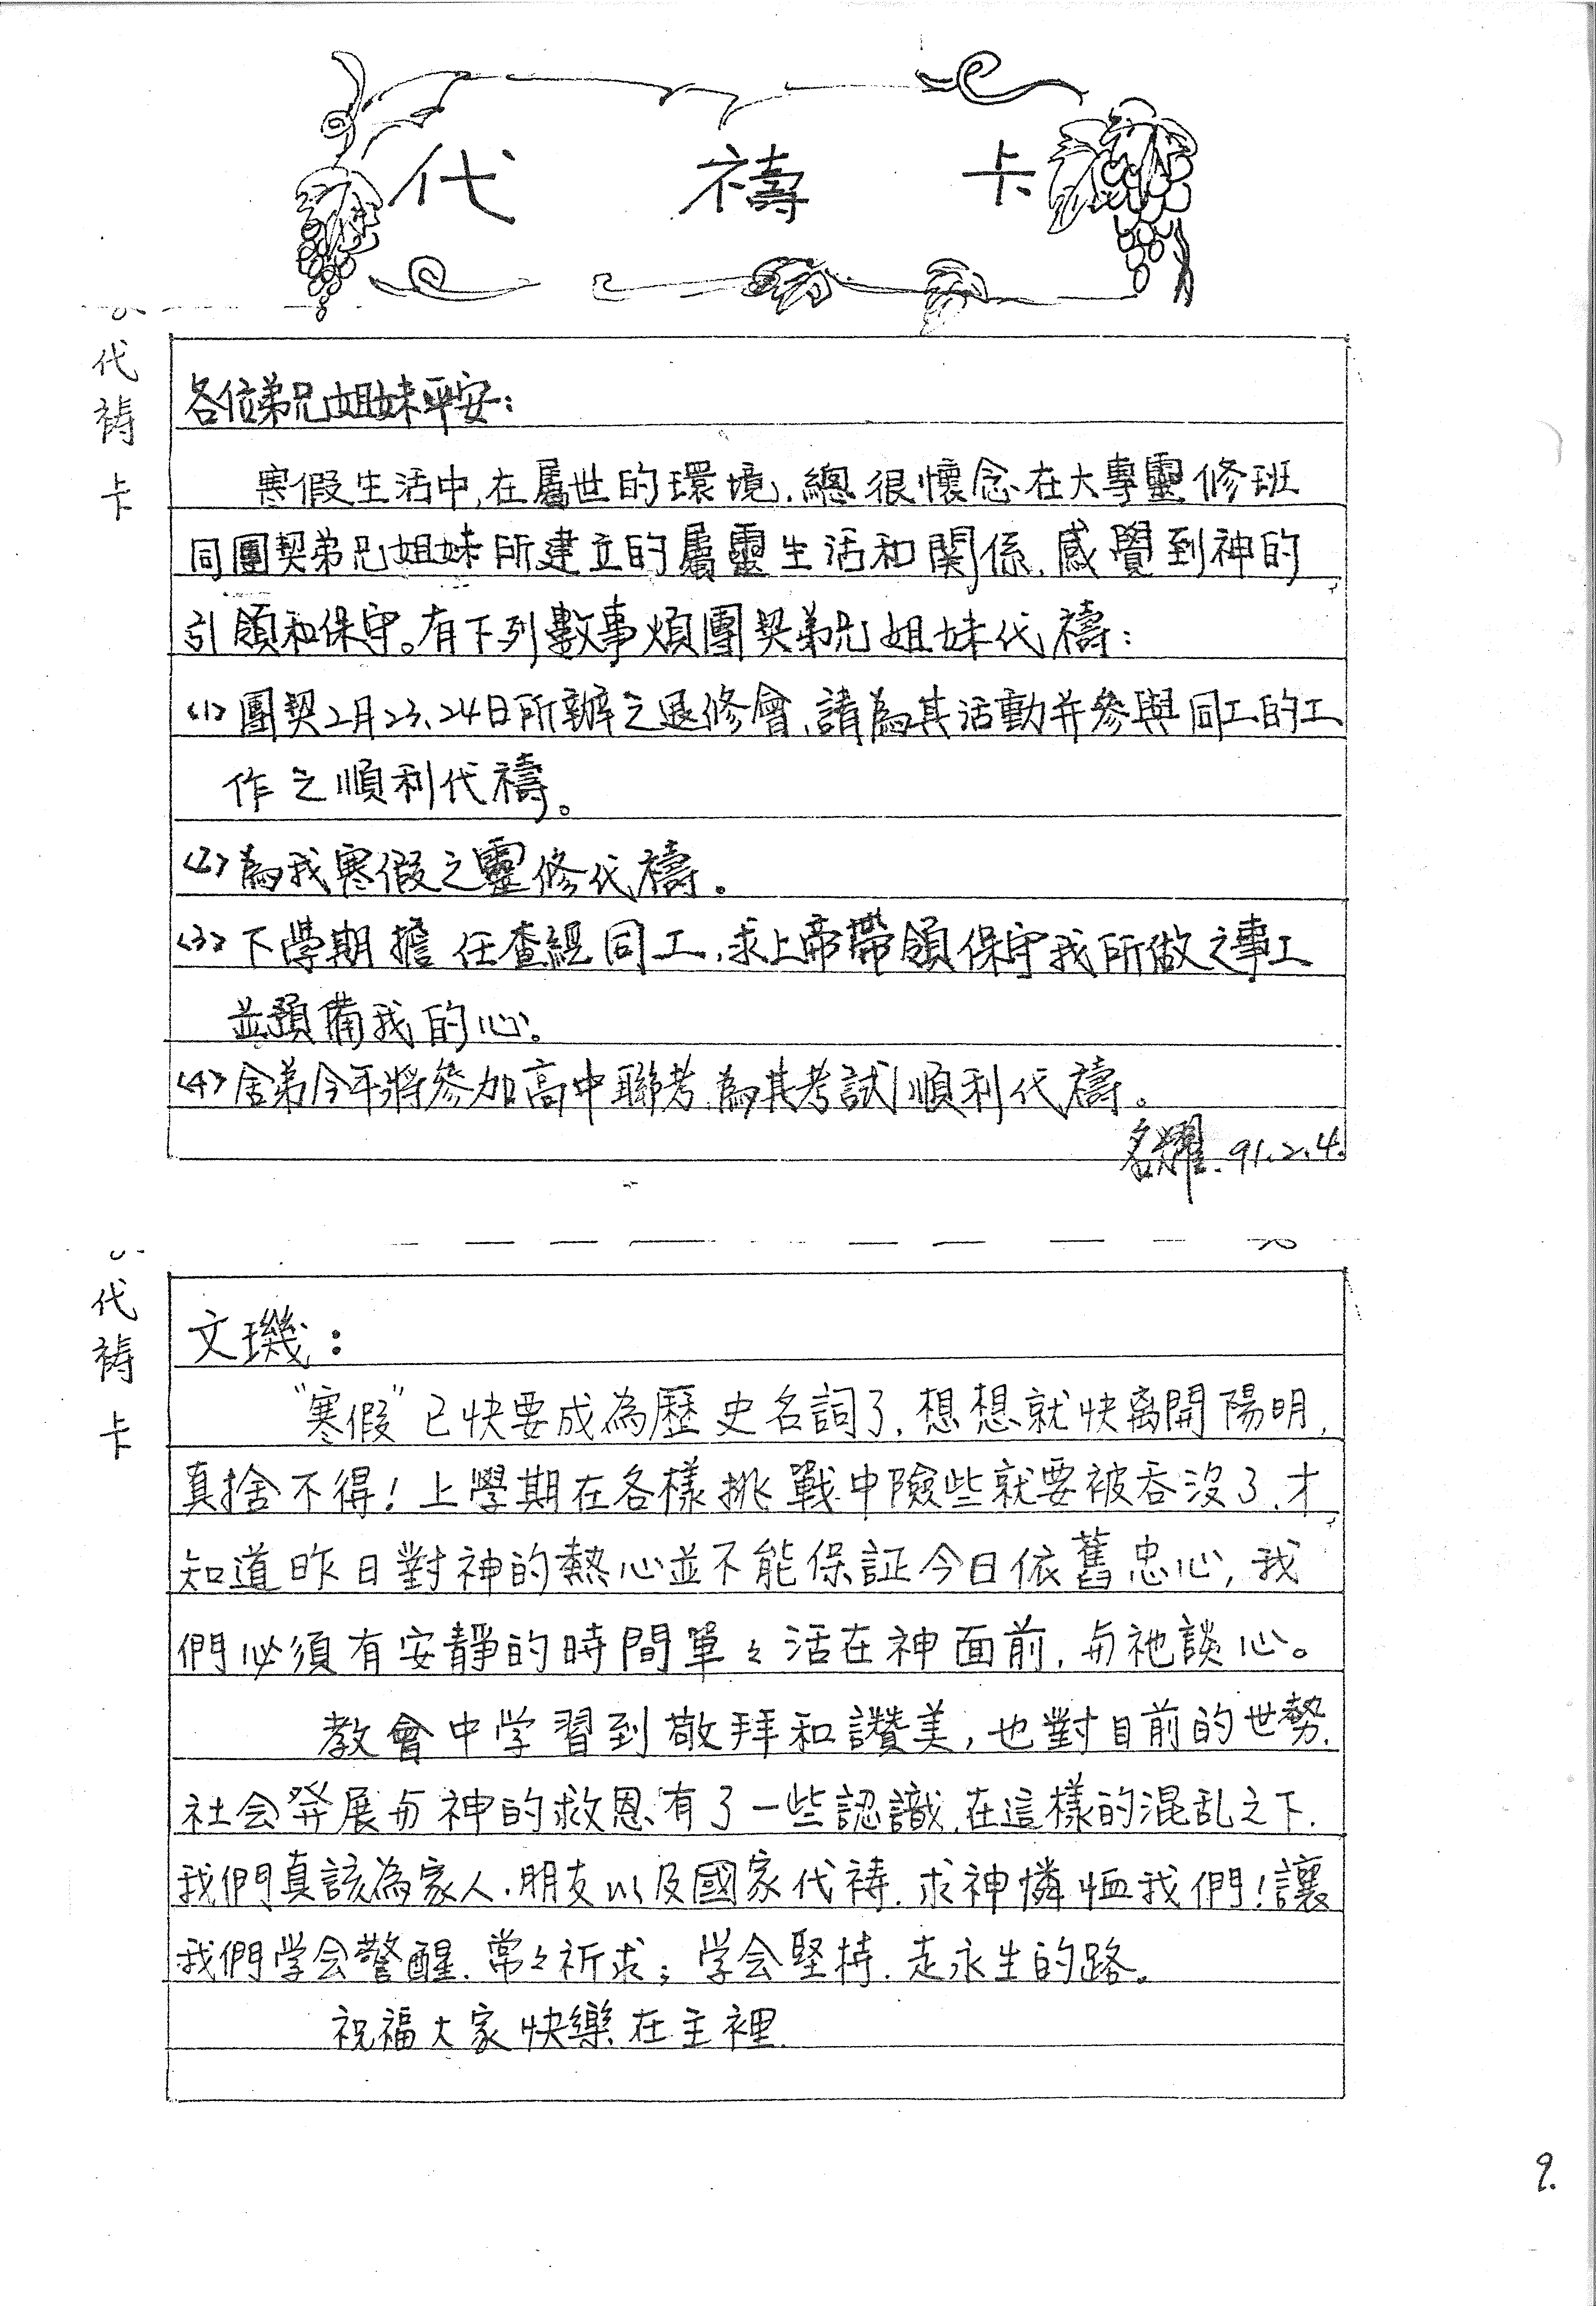 代禱卡
代禱卡
各位弟兄姐妹平安：
寒假生活中,在屬世的環境,總很懷念在大專靈修班
同團契弟兄姐妹所建立的屬靈生活和関係,感覺到神的
引領和保守。有下列數事煩團契弟兄姐妹代禱：
(1)團契2月23、24日所辦之退修會,請為其活動并參與同工的工
作之順利代禱。
(2)為我寒假之靈修代禱。
(3)下學期擔任查經同工,求上帝帶領保守我所做之事工
並預備我的心。
(4)舍弟今年將參加高中聯考,為其考試順利代禱。
名耀.91.2.4.
代祷卡
文璣：
"寒假"已快要成為歷史名詞了,想想就快离開陽明,
真捨不得!上學期在各樣挑戰中險些就要被吞沒了,才
知道昨日對神的熱心並不能保証今日依舊忠心,我
們必須有安靜的時間單々活在神面前,与祂談心。
教會中学習到敬拜和讚美,也對目前的世勢,
社会発展与神的救恩有了一些認識,在這樣的混乱之下,
我們真該為家人,朋友以及國家代祷,求神憐恤我們!讓
我們学会警醒,常々祈求；学会堅持,走永生的路。
祝福大家快樂在主裡.
9.